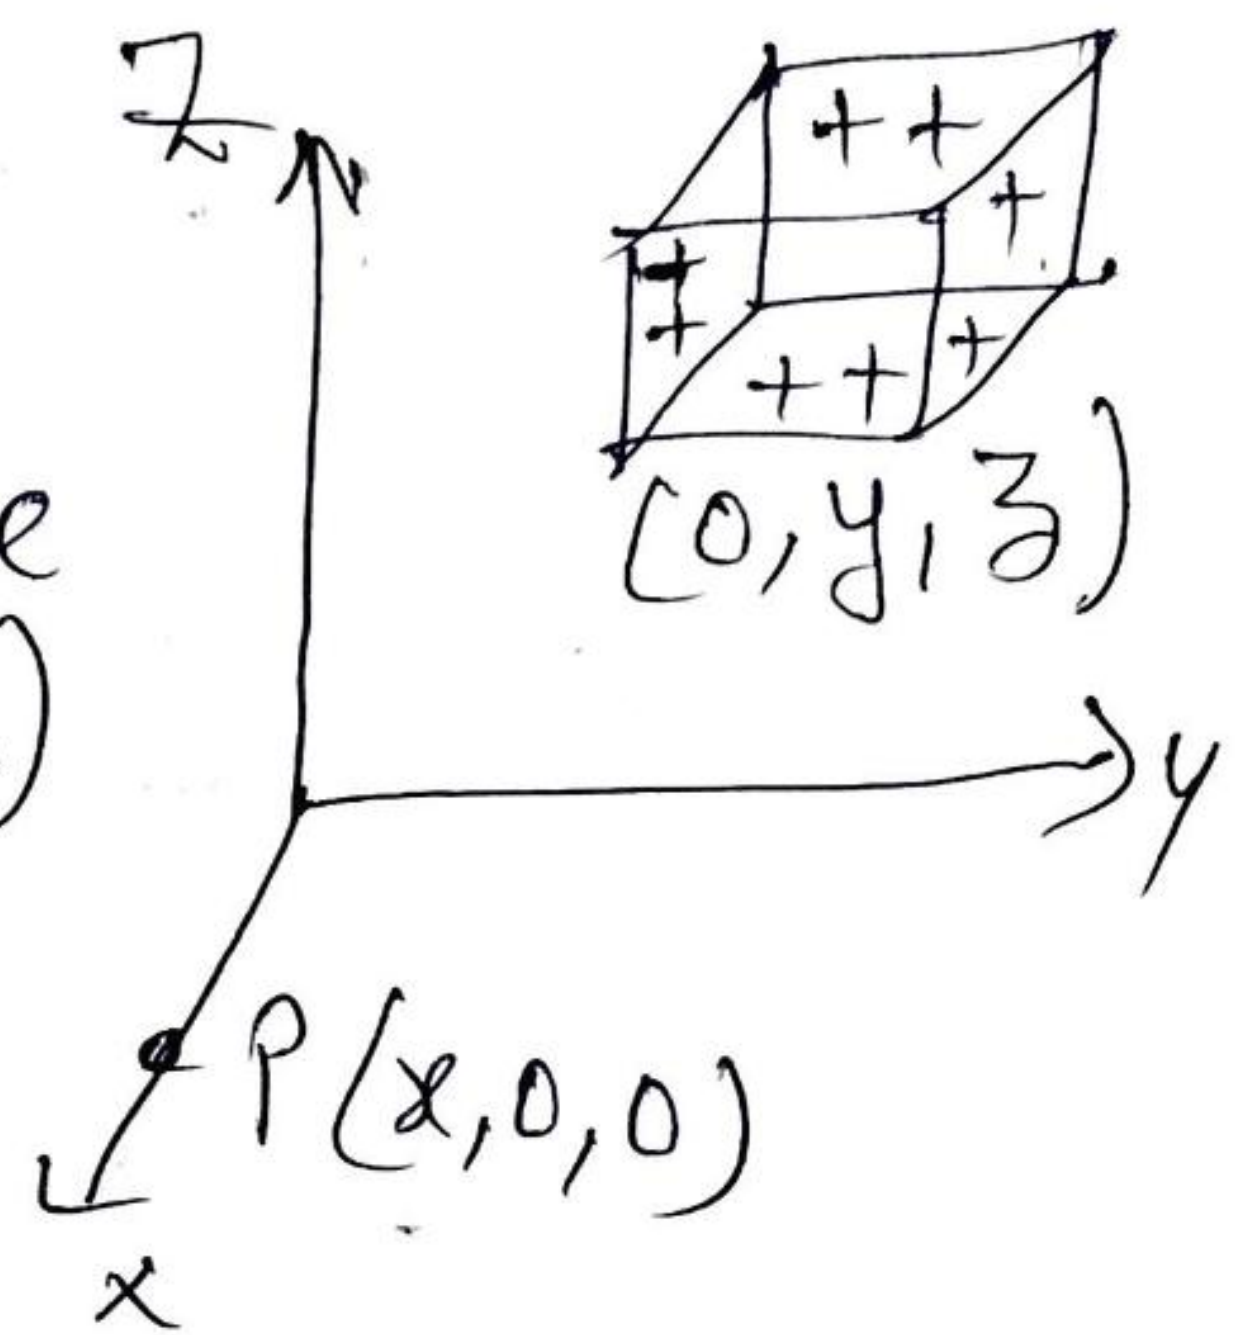 Z
+ +
+
+
+
+
+ +
(0, y, z)
e
)
y
P(x, 0, 0)
x